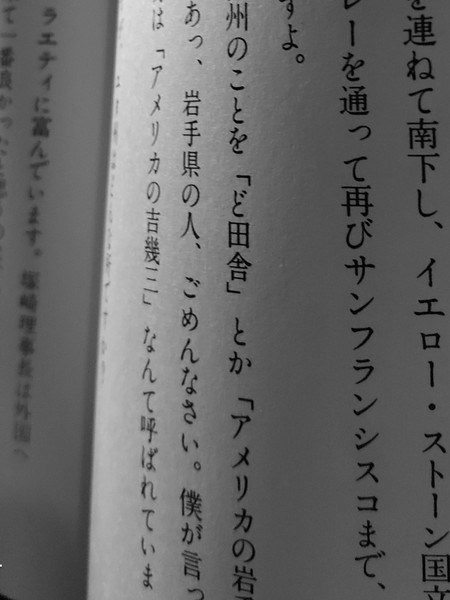 を連ねて南下し、イエロー・ストーン国立
レーを通って再びサンフランシスコまで、
すよ。
州のことを「ど田舎」とか「アメリカの岩手
あっ、岩手県の人、ごめんなさい。僕が言っ
は「アメリカの吉幾三」なんて呼ばれていま
ラエティに富んでいます。塚崎理事長は外国へ
て一番良かった